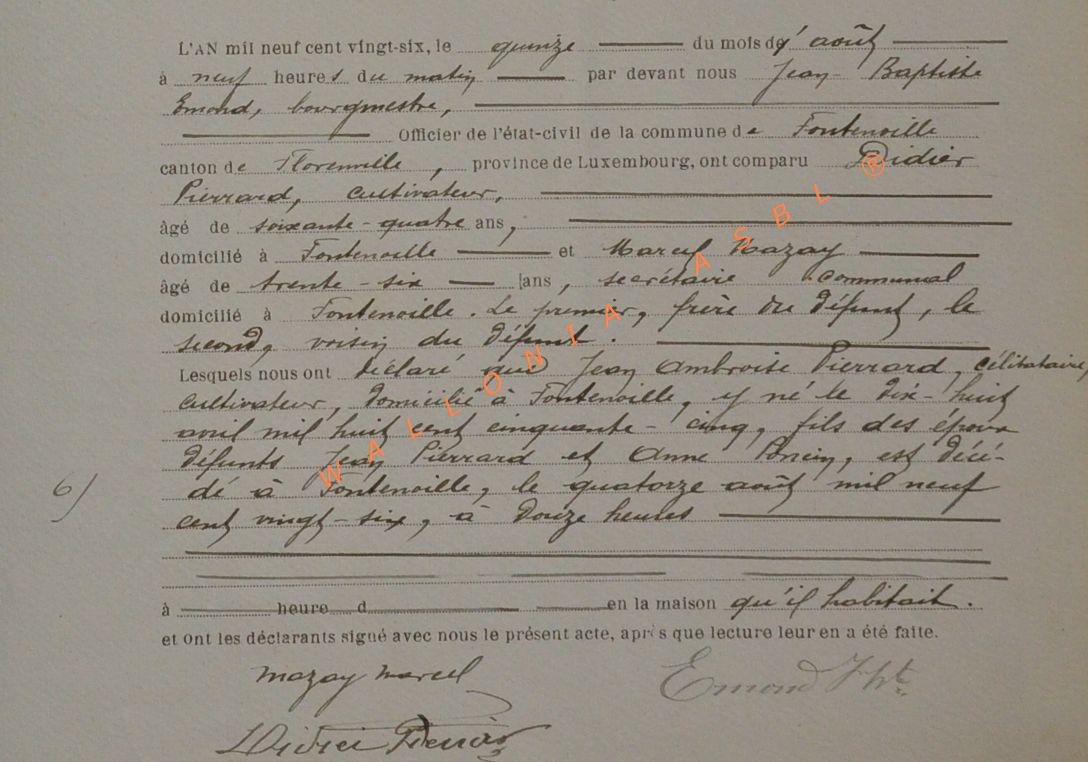 L'AN mil neuf cent vingt-six, le quinze du mois d'août
à neuf heures du matin par devant nous Jean-Baptiste
Emond, bourgmestre,
Officier de l'état-civil de la commune de Fontenoille
canton de Florenville, province de Luxembourg, ont comparu Didier
Pierrard, cultivateur,
âgé de soixante-quatre ans,
domicilié à Fontenoille et Marcel Mazay
âgé de trente-six ans, secrétaire communal
domicilié à Fontenoille. Le premier, frère du défunt, le
second, voisin du défunt.
Lesquels nous ont déclaré que Jean Ambroise Pierrard, célibataire,
cultivateur, domicilié à Fontenoille, y né le dix-huit
avril mil huit cent cinquante-cinq, fils des époux
défunts Jean Pierrard et Anne Poncin, est décé-
6) dé à Fontenoille, le quatorze août mil neuf
cent vingt-six, à douze heures
à heure d en la maison qu'il habitait.
et ont les déclarants signé avec nous le présent acte, après que lecture leur en a été faite.
Mazay Marcel Emond J Bte
Didier Pierrard
WALLONIA ASBL ®